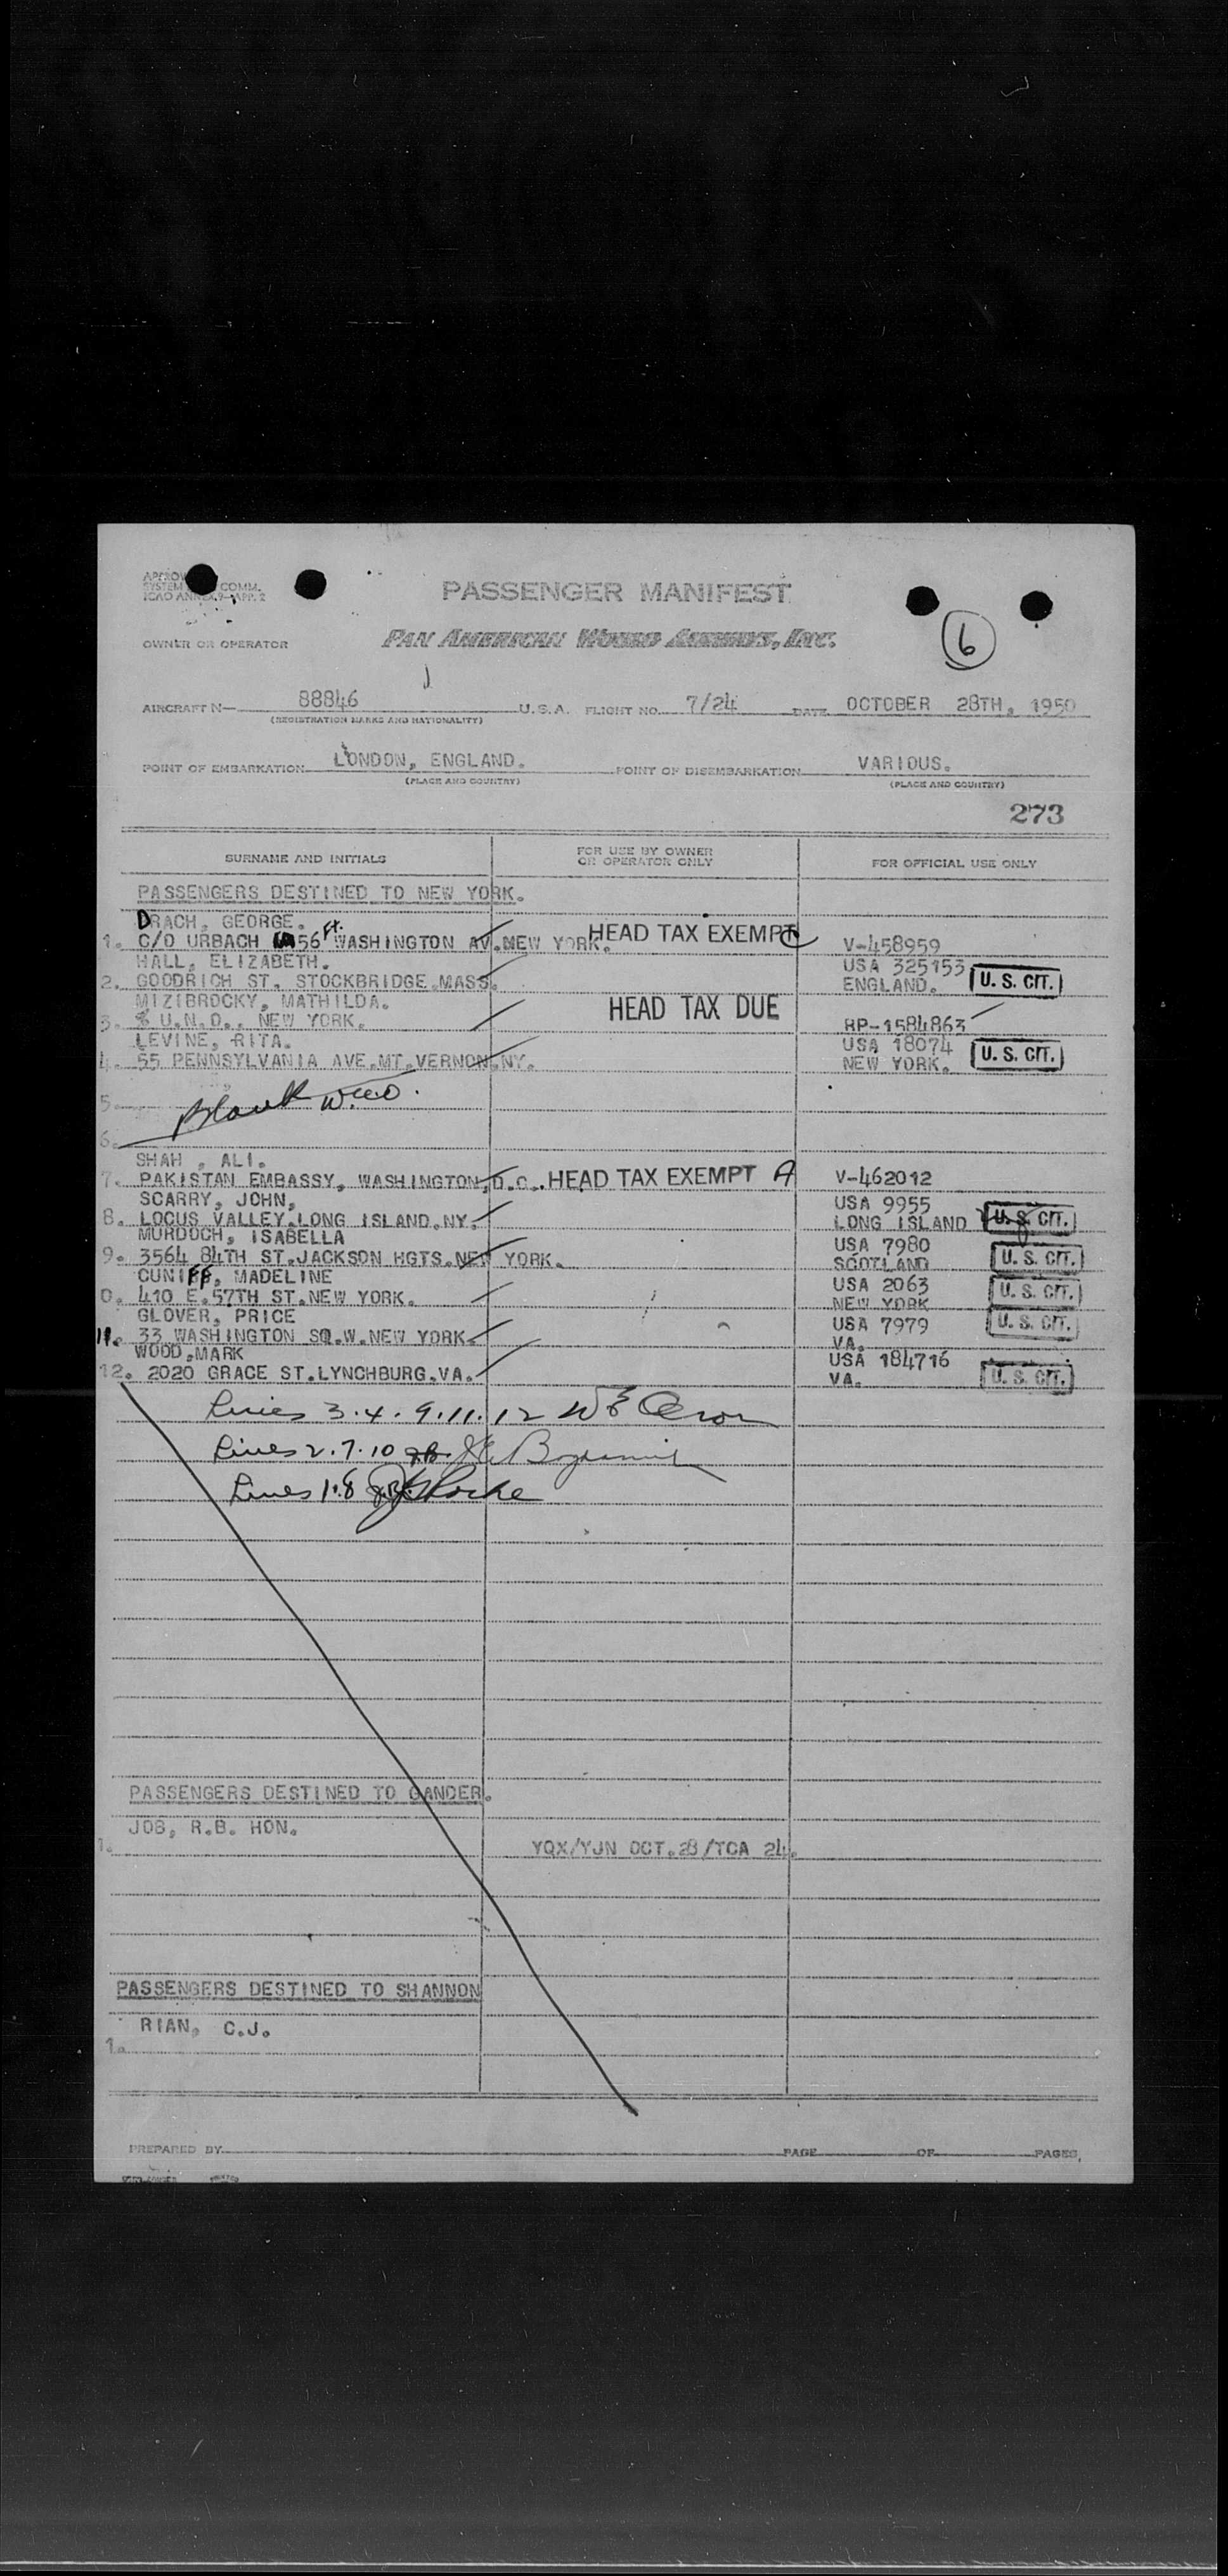 PASSENGER MANIFEST
COMM.
OWNER OR OPERATOR PAN AMERICAN WORLD AIRWAYS, INC. 6
AIRCRAFT N— 88846 U.S.A. FLIGHT NO. 7/24 DATE OCTOBER 28TH, 1950
(REGISTRATION MARKS AND NATIONALITY)
POINT OF EMBARKATION LONDON, ENGLAND. POINT OF DISEMBARKATION VARIOUS.
(PLACE AND COUNTRY) (PLACE AND COUNTRY)
273
SURNAME AND INITIALS FOR USE BY OWNER OR OPERATOR ONLY FOR OFFICIAL USE ONLY
PASSENGERS DESTINED TO NEW YORK.
DRACH, GEORGE.
1. C/O URBACH 56 Ft. WASHINGTON AV.NEW YORK. HEAD TAX EXEMPT C V-458959
HALL, ELIZABETH. USA 325153
2. GOODRICH ST. STOCKBRIDGE.MASS. ENGLAND. U. S. CIT.
MIZIBROCKY, MATHILDA.
3. % U.N.O., NEW YORK. HEAD TAX DUE RP-1584863
LEVINE, RITA. USA 18074
4. 55 PENNSYLVANIA AVE.MT.VERNON.NY. NEW YORK. U. S. CIT.
5. Blank
6.
SHAH , ALI.
7. PAKISTAN EMBASSY, WASHINGTON,D.C. HEAD TAX EXEMPT A V-462012
SCARRY, JOHN, USA 9955
8. LOCUS VALLEY.LONG ISLAND.NY. LONG ISLAND U. S. CIT.
MURDOCH, ISABELLA USA 7980
9. 3564 84TH ST.JACKSON HGTS.NEW YORK. SCOTLAND U. S. CIT.
CUNIFF, MADELINE USA 2063
0. 410 E.57TH ST.NEW YORK. NEW YORK U. S. CIT.
GLOVER, PRICE USA 7979
11. 33 WASHINGTON SQ.W.NEW YORK. VA. U. S. CIT.
WOOD,MARK USA 184716
12. 2020 GRACE ST.LYNCHBURG.VA. VA. U. S. CIT.
Lines 3.4.9.11.12
Lines 2.7.10
Lines 1.8
PASSENGERS DESTINED TO GANDER.
JOB, R.B. HON.
1. YQX/YJN OCT.28/TCA 24.
PASSENGERS DESTINED TO SHANNON
RIAN, C.J.
1.
PREPARED BY PAGE OF PAGES